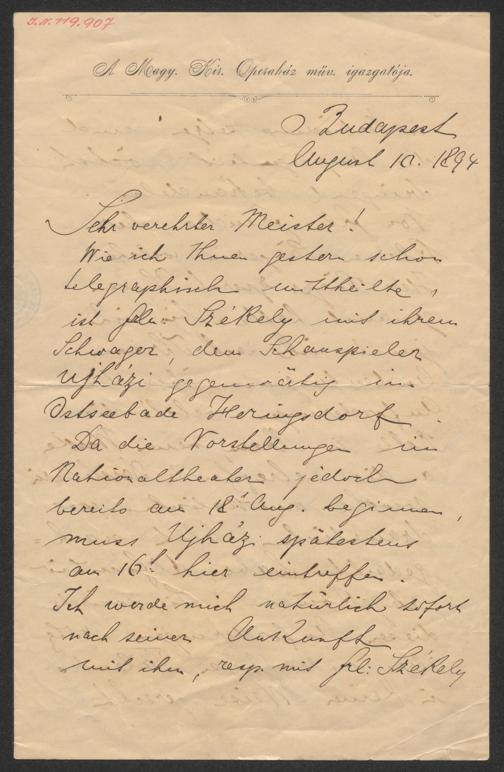 I.N. 119.907
A Magy. Kir. Operaház műv. igazgatója.
Budapest
August 10. 1894
Sehr verehrter Meister!
Wie ich Ihnen gestern schon
telegraphisch mittheilte,
ist Frln Székely mit ihrem
Schwager, dem Schauspieler
Ujházi gegenwärtig im
Ostseebade Heringsdorf.
Da die Vorstellungen im
Nationaltheater jedoch
bereits am 18t Aug. beginnen,
muss Ujházi spätestens
am 16t hier eintreffen.
Ich werde mich natürlich sofort
nach seiner Ankunft
mit ihm, resp. mit Frl: Székely